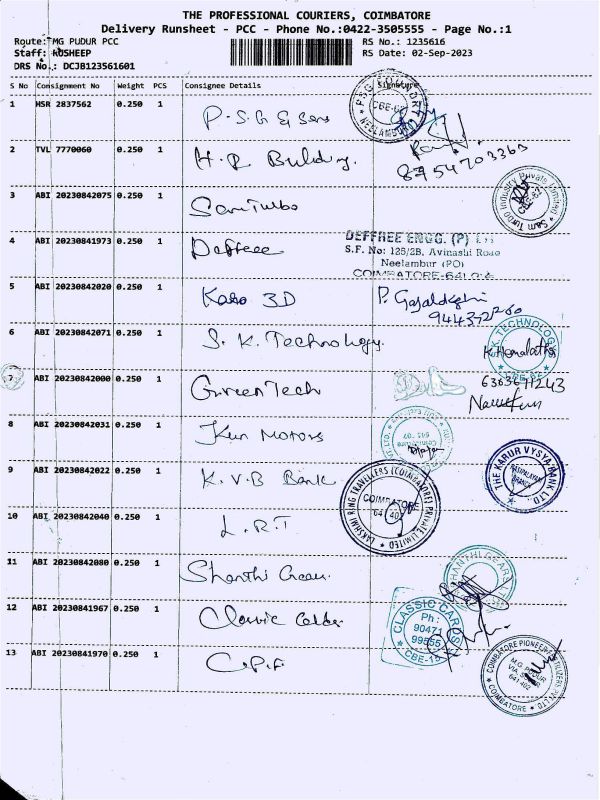 THE PROFESSIONAL COURIERS, COIMBATORE
Delivery Runsheet - PCC - Phone No.:0422-3505555 - Page No.:1
Route: MG PUDUR PCC RS No.: 1235616
Staff: RUSHEEP RS Date: 02-Sep-2023
DRS No.: DCJB123561601
S No Consignment No Weight PCS Consignee Details Signature
1 HSR 2837562 0.250 1 P.S.G & Sons
2 TVL 7770060 0.250 1 H.R Building.
8754703363
3 ABI 20230842075 0.250 1 Sam Turbo
Sam Turbo Industry Private Limited
4 ABI 20230841973 0.250 1 Deffree
DEFFREE ENGG. (P)
S.F. No: 125/2B, Avinashi Road
Neelambur (PO)
COIMBATORE-641
5 ABI 20230842020 0.250 1 3D P.
6 ABI 20230842071 0.250 1 S. K. Technology
S.K. TECHNOLOGY
K. Hemalatha
7 ABI 20230842000 0.250 1 Green Tech
6363611243
8 ABI 20230842031 0.250 1 Motors
9 ABI 20230842022 0.250 1 K.V.B Bank
THE KARUR VYSYA BANK LTD
LAKSHMI RING TRAVELLERS (COIMBATORE) PRIVATE LIMITED
COIMBATORE
10 ABI 20230842040 0.250 1 L.R.T
11 ABI 20230842080 0.250 1 Shanthi Gears
SHANTHI GEARS
12 ABI 20230841967 0.250 1 Classic
CLASSIC CARDS
Ph :
90471
99555
CBE-15
13 ABI 20230841970 0.250 1 C.P.F
COIMBATORE PIONEER FERTILIZERS PVT LTD
M.G. PUDUR
COIMBATORE